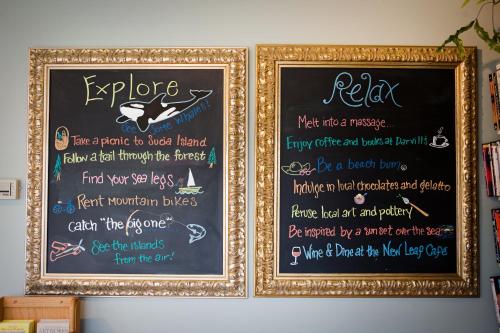 Explore
See some whales!
Take a picnic to Sucia Island
Follow a trail through the forest
Find your sea legs
Rent mountain bikes
Catch "the big one"
See the islands
from the air!
Relax
Melt into a massage...
Enjoy coffee and books at Darvill's
Be a beach bum
Indulge in local chocolates and gelatto
Peruse local art and pottery
Be inspired by a sunset over the sea
Wine & Dine at the New Leaf Cafe